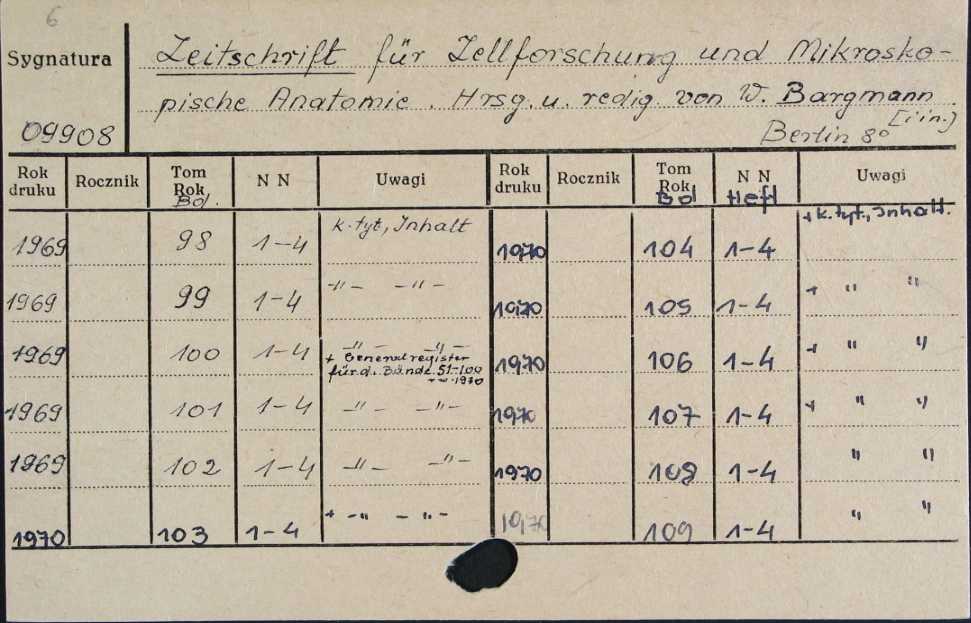 6
Sygnatura
Zeitschrift für Zellforschung und Mikrosko-
pische Anatomie. Hrsg. u. redig. von W. Bargmann
[i in.]
09908
Berlin 8°
Rok druku Rocznik Tom Rok Bd. N N Uwagi Rok druku Rocznik Tom Rok Bd N N Heft Uwagi
1969 98 1-4 k. tyt, Inhalt 1970 104 1-4 + k. tyt., Inhalt.
1969 99 1-4 -"- -"- 1970 105 1-4 + " "
1969 100 1-4 -"- -"- 1970 106 1-4 + " "
+ Generalregister
für d. Bände 51-100
1970
1969 101 1-4 -"- -"- 1970 107 1-4 + " "
1969 102 1-4 -"- -"- 1970 108 1-4 " "
1970 103 1-4 + -"- -"- 1970 109 1-4 " "